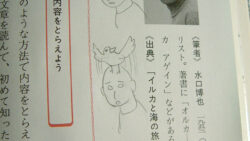 〈筆者〉 水口博也 一九五
リスト。著書に「オルカ
カ アゲイン」などがあ
〈出典〉「イルカと海の旅
内容をとらえよう
のような方法で内容をとらえ
文章を読んで、初めて知った